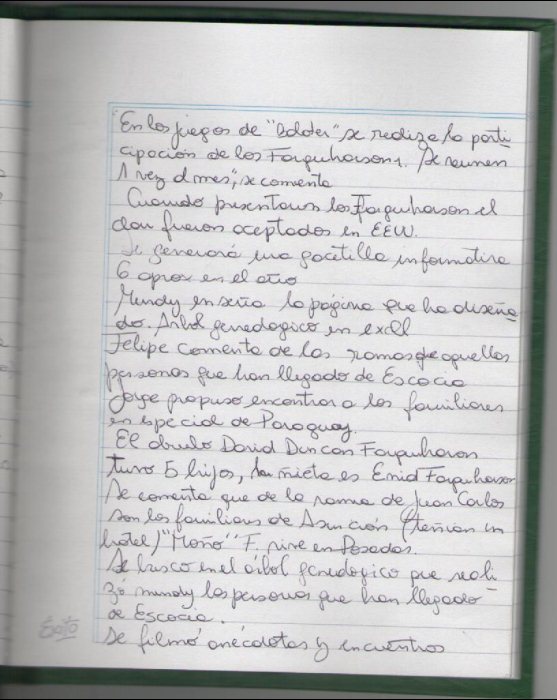 En los juegos de "Calder" se realiza la parti
cipación de los Farquharson. Se reunen
1 vez al mes, se comenta
Cuando presentaron los Farquharson el
clan fueron aceptados en EEUU.
Se generará una gacetilla informativa
6 aprox en el año
Mendy enseña la página que ha diseña
do. Arbol genealogico en excel
Felipe comenta de las ramas de aquellas
personas que han llegado de Escocia
Jorge propuso encontrar a los familiares
en especial de Paraguay.
El abuelo David Duncan Farquharson
tuvo 5 hijos, la nieta es Enid Farquharson
Se comenta que de la rama de Juan Carlos
son los familiares de Asunción (tenían un
hotel) "Moño" F. vive en Posadas.
Se busco en el árbol genealogico que reali
zó mendy las personas que han llegado
de Escocia.
Se filmó anécdotas y encuentros